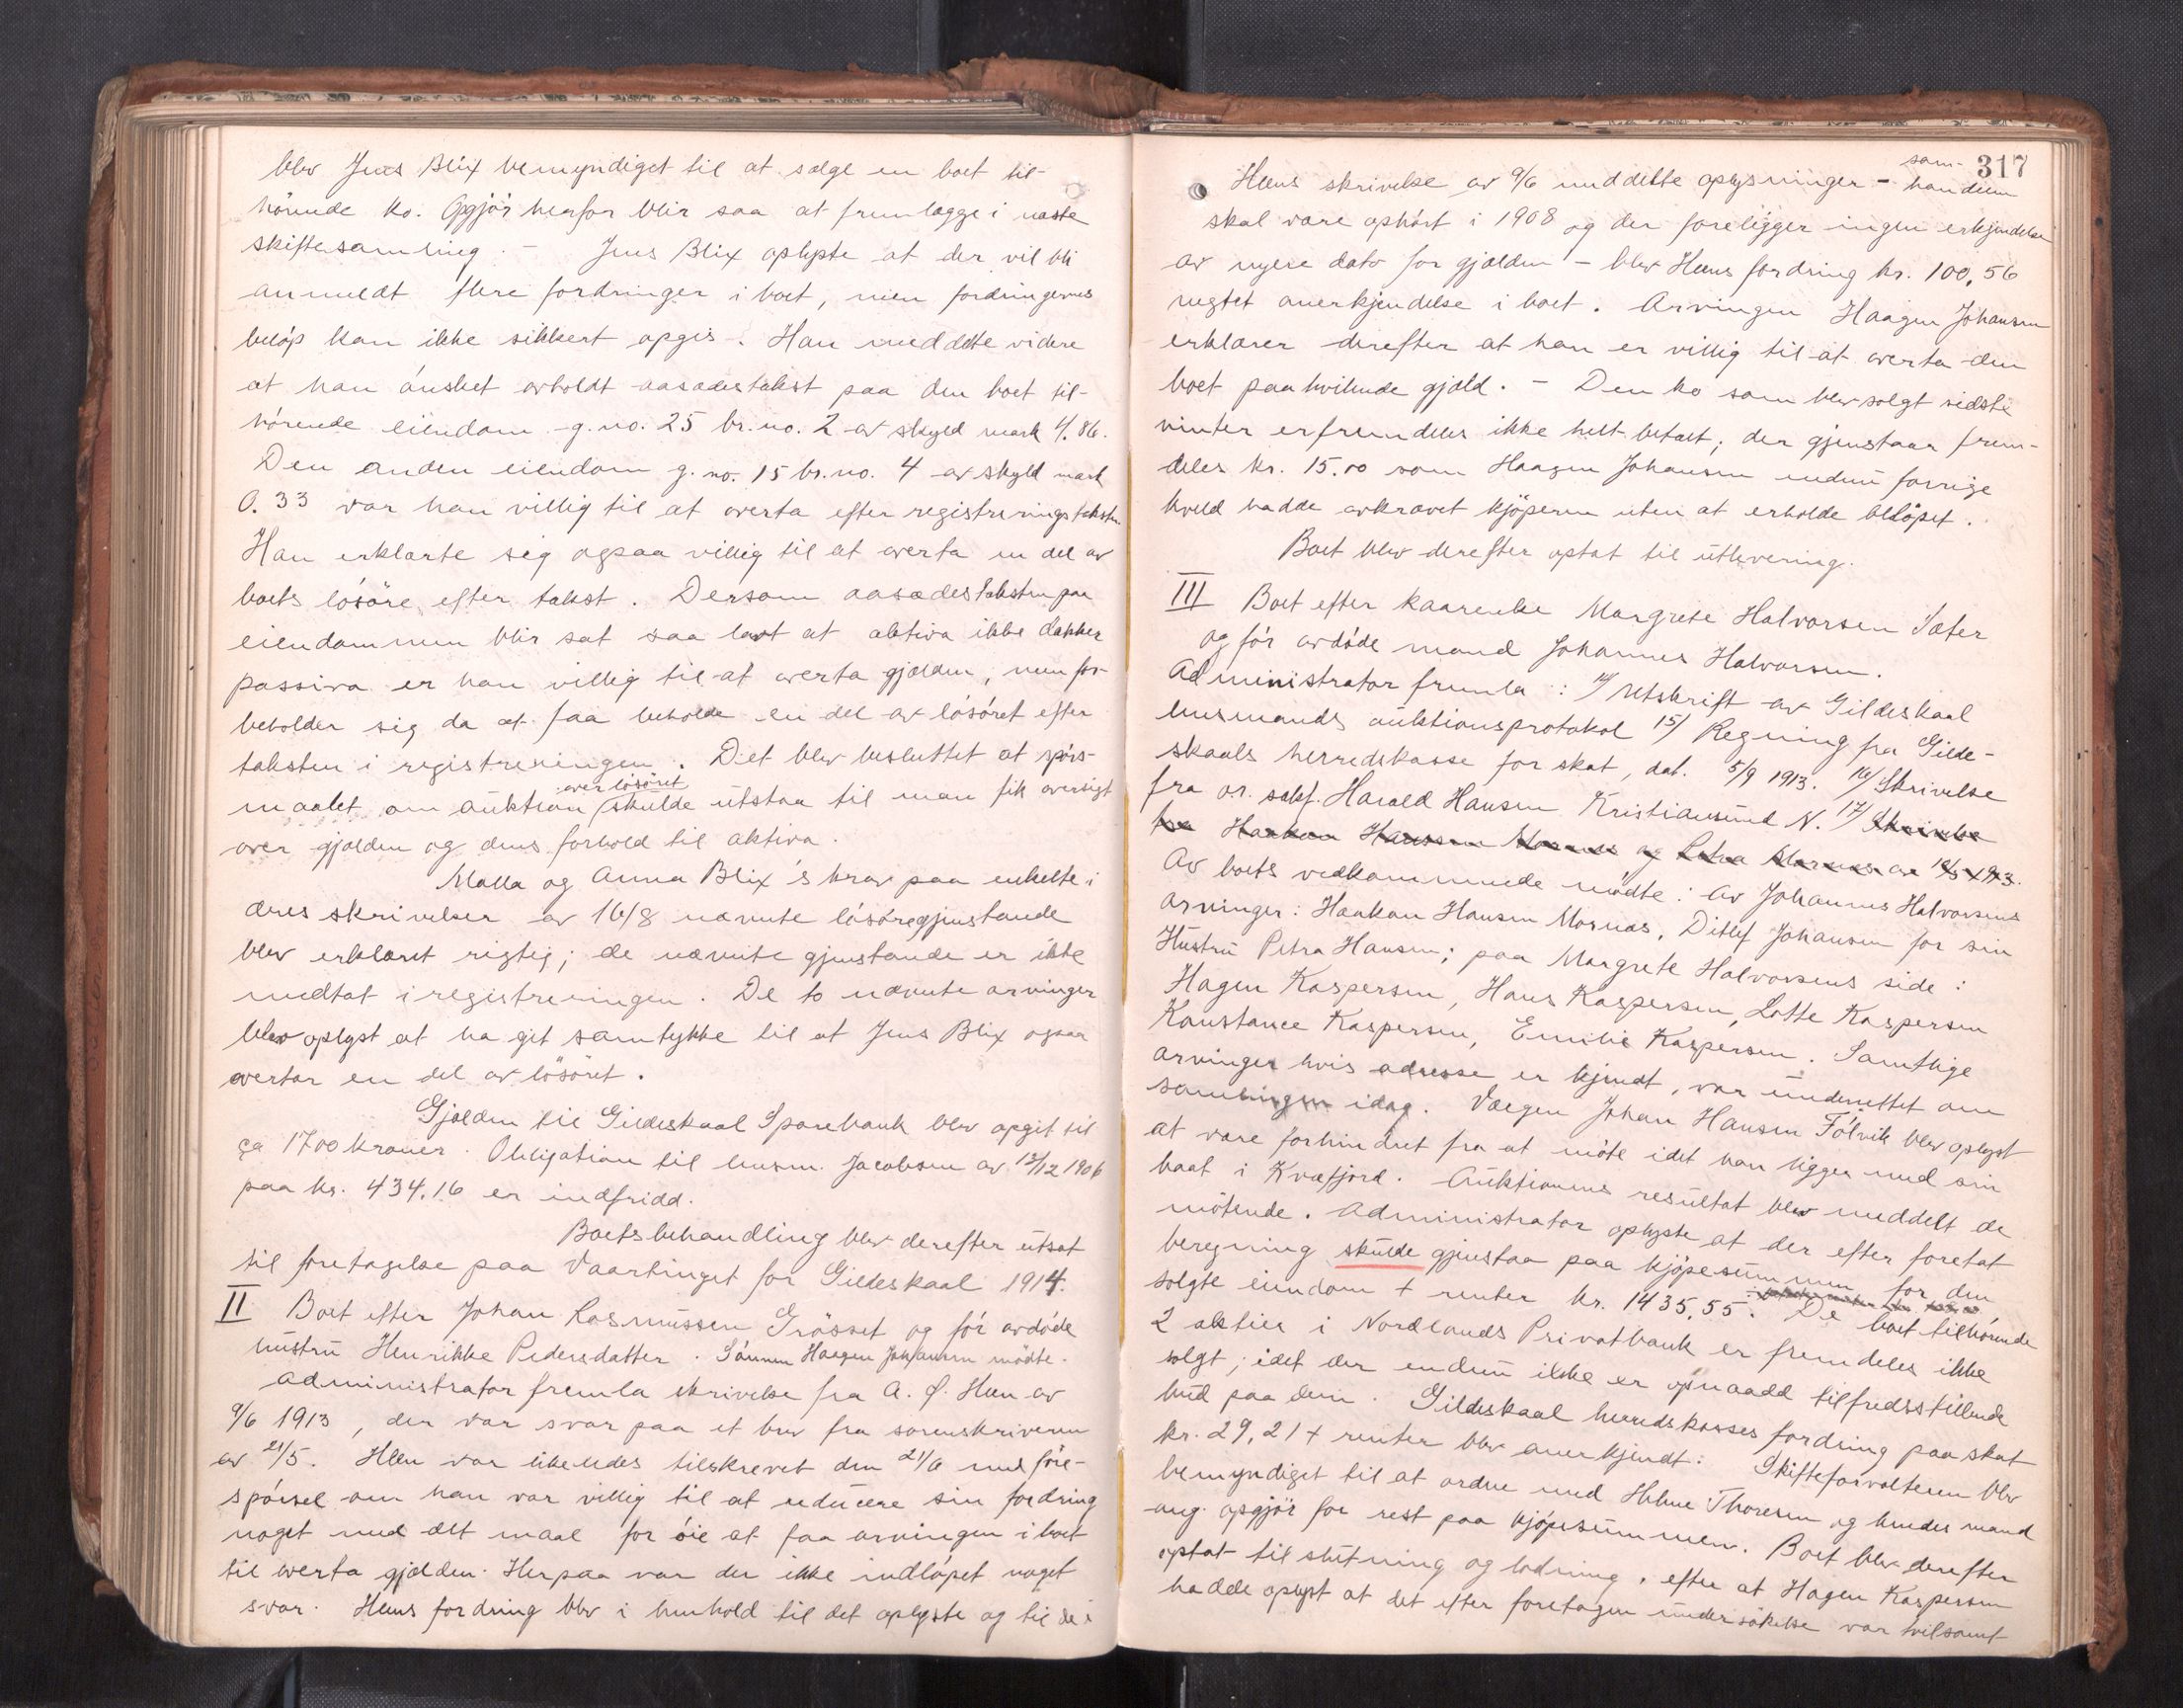 blev Jens Blix bemyndiget til at sælge en boet til-
hörende ko. Opgjör herfor blir saa at fremlægge i næste
skiftesamling. – Jens Blix oplyste at der vil bli
anmeldt flere fordringer i boet, men fordringernes
belöp kan ikke sikkert opgis. Han meddelte videre
at han önsket avholdt aasædestakst paa den boet til-
hörende eiendom g.no. 25 br.no. 2 av skyld mark 4.86.
Den anden eiendom g.no. 15 br.no. 4 av skyld mark
0.33 var han villig til at overta efter registreringstaksten.
Han erklærte sig ogsaa villig til at overta en del av
boets lösöre efter takst. Dersom aasædestaksten paa
eiendommen blir sat saa lavt at aktiva ikke dækker
passiva er han villig til at overta gjælden, men for-
beholder sig da at faa beholde en del av lösöret efter
taksten i registreringen. Det blev besluttet at spörs-
over lösöret
maalet om auktion skulde utstaa til man fik oversigt
over gjælden og dens forhold til aktiva.
Malla og Anna Blix's krav paa enkelte i
deres skrivelser av 16/8 nævnte lösöregjenstande
blev erklæret rigtig; de nævnte gjenstande er ikke
medtat i registreringen. De to nævnte arvinger
blev oplyst at ha git samtykke til at Jens Blix ogsaa
overtar en del av lösöret.
Gjælden til Gildeskaal Sparebank blev opgit til
ca 1700 kroner. Obligation til lensm. Jacobsen av 12/12 1906
paa kr. 434.16 er indfridd.
Boets behandling blev derefter utsat
til foretagelse paa Vaartinget for Gildeskaal 1914.
II Boet efter Johan Rasmussen Grösset og för avdöde
hustru Henrikke Pedersdatter. Sönnen Haagen Johansen mödte.
Administrator fremla skrivelse fra A. J. Heen av
9/6 1913, der var svar paa et brev fra sorenskriveren
av 21/5. Heen var likeledes tilskrevet den 21/6 med fore-
spörsel om han var villig til at reducere sin fordring
noget med det maal for öie at faa arvingen i boet
til overta gjælden. Herpaa var der ikke indlöpet noget
svar. Heens fordring blev i henhold til det oplyste og til de i
317
sam-
Heens skrivelse av 9/6 meddelte oplysninger – handelen
skal være ophört i 1908 og der foreligger ingen erkjendelse
av nyere dato for gjælden – blev Heens fordring kr. 100,56
negtet anerkjendelse i boet. Arvingen Haagen Johansen
erklærer derefter at han er villig til at overta den
boet paahvilende gjæld. – Den ko som blev solgt sidste
vinter er fremdeles ikke helt betalt; der gjenstaar frem-
deles kr. 15.00 som Haagen Johansen endnu forrige
kveld hadde avkrævet kjöperen uten at erholde belöpet.
Boet blev derefter optat til utlevering.
III Boet efter kaarenke Margrete Halvorsen Sæter
og för avdöde mand Johannes Halvorsen.
Administrator fremla: 14/ Utskrift av Gildeskaal
lensmands auktionsprotokol 15/ Regning fra Gilde-
skaals herredskasse for skat, dat. 5/9 1913. 16/ Skrivelse
fra o.r. sakf. Harald Hansen Kristiansund N. 17/ Skrivelse
fra Haakon Hansen Mornes og Petra Mornes av 18/5 1913.
Av boets vedkommende mödte: av Johannes Halvorsens
arvinger: Haakon Hansen Mornæs, Ditlef Johansen for sin
Hustru Petra Hansen; paa Margrete Halvorsens side:
Hagen Kaspersen, Hans Kaspersen, Lotte Kaspersen
Konstance Kaspersen, Emilie Kaspersen. Samtlige
arvinger hvis adresse er kjendt, var underrettet om
samlingen idag. Værgen Johan Hansen Fölvik blev oplyst
at være forhindret fra at möte idet han ligger med sin
baat i Kvæfjord. Auktionens resultat blev meddelt de
mötende. Administrator oplyste at der efter foretat
beregning skulde gjenstaa paa kjöpesummen for den
solgte eiendom + renter kr. 1435,55. De boet tilhörende
2 aktier i Nordlands Privatbank er fremdeles ikke
solgt; idet der endnu ikke er opnaadd tilfredsstillende
bud paa dem. Gildeskaal herredskasses fordring paa skat
kr. 29,21 + renter blev anerkjendt. Skifteforvalteren blev
bemyndiget til at ordne med Helene Thoresen og hendes mand
ang. opgjör for rest paa kjöpesummen. Boet blev derefter
optat til slutning og lodning, efter at Hagen Kaspersen
hadde oplyst at det efter foretagen undersökelse var tvilsomt